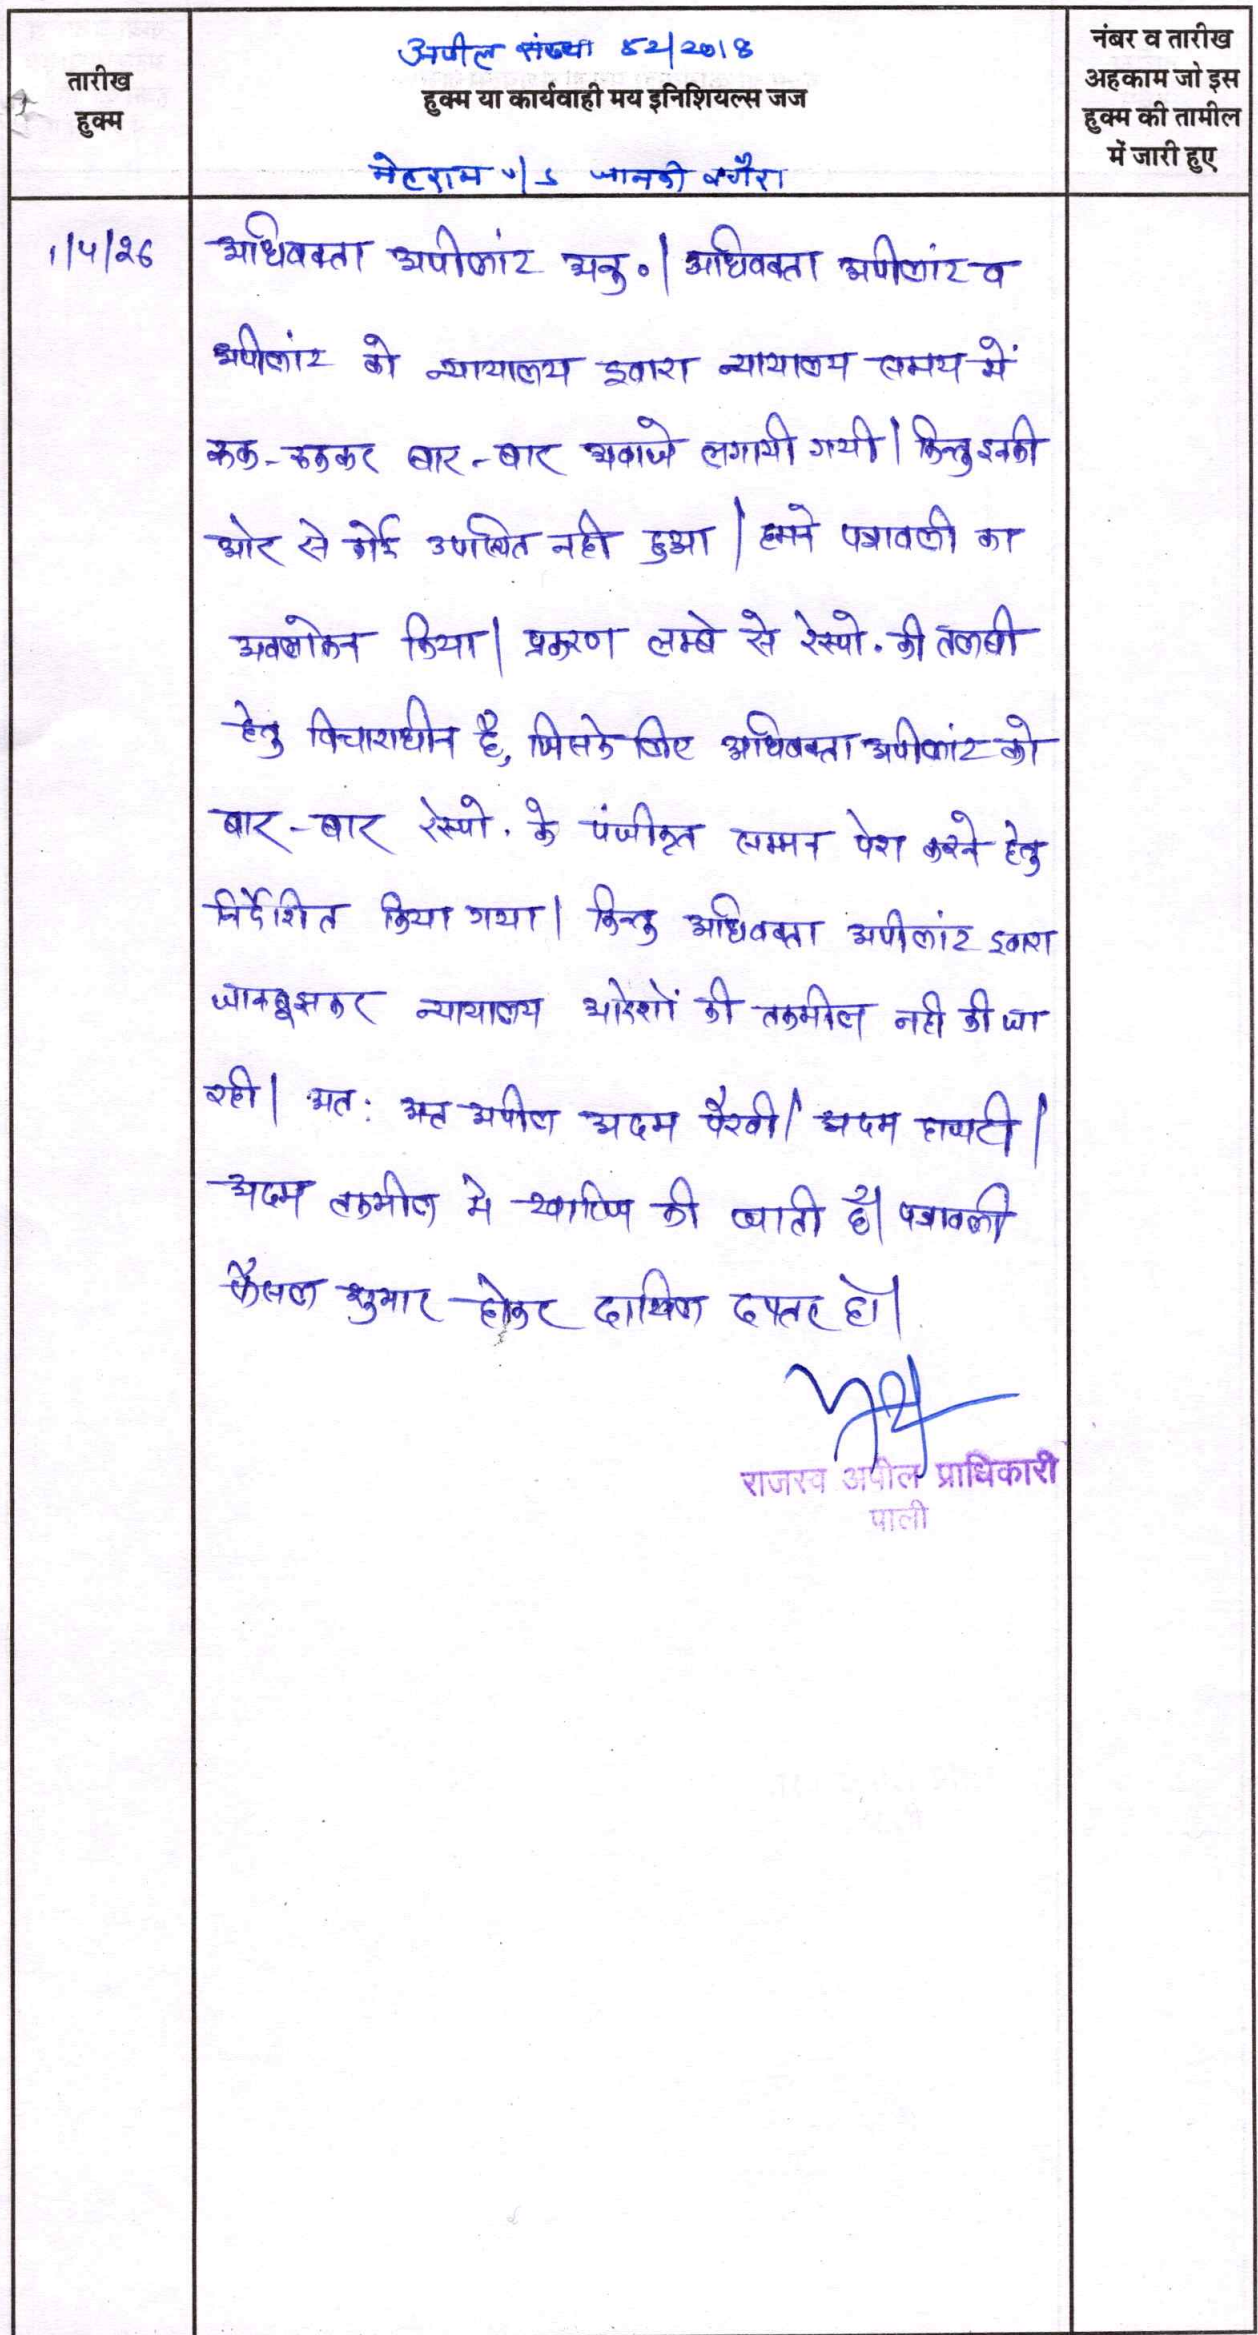 तारीख
हुक्म
अपील संख्या 52/2018
हुक्म या कार्यवाही मय इनिशियल्स जज
मेहराम v/s जानकी वगैरा
नंबर व तारीख
अहकाम जो इस
हुक्म की तामील
में जारी हुए
1/4/26
अधिवक्ता अपीलांट अनु०। अधिवक्ता अपीलांट व
अपीलांट को न्यायालय द्वारा न्यायालय समय में
रूक-रूककर बार-बार अवाजे लगायी गयी। किन्तु इनकी
ओर से कोई उपस्थित नही हुआ। हमने पत्रावली का
अवलोकन किया। प्रकरण लम्बे से रेस्पो. की तलबी
हेतु विचाराधीन है, जिसके लिए अधिवक्ता अपीलांट को
बार-बार रेस्पो. के पंजीकृत सम्मन पेश करने हेतु
निर्देशित किया गया। किन्तु अधिवक्ता अपीलांट द्वारा
जानबूझकर न्यायालय आदेशों की तकमील नही की जा
रही। अत: अपील अदम पैरवी/ अदम हाजरी/
अदम तकमील मे खारिज की जाती है। पत्रावली
फैसल शुमार होकर दाखिल दफ्तर हो।
राजस्व अपील प्राधिकारी
पाली